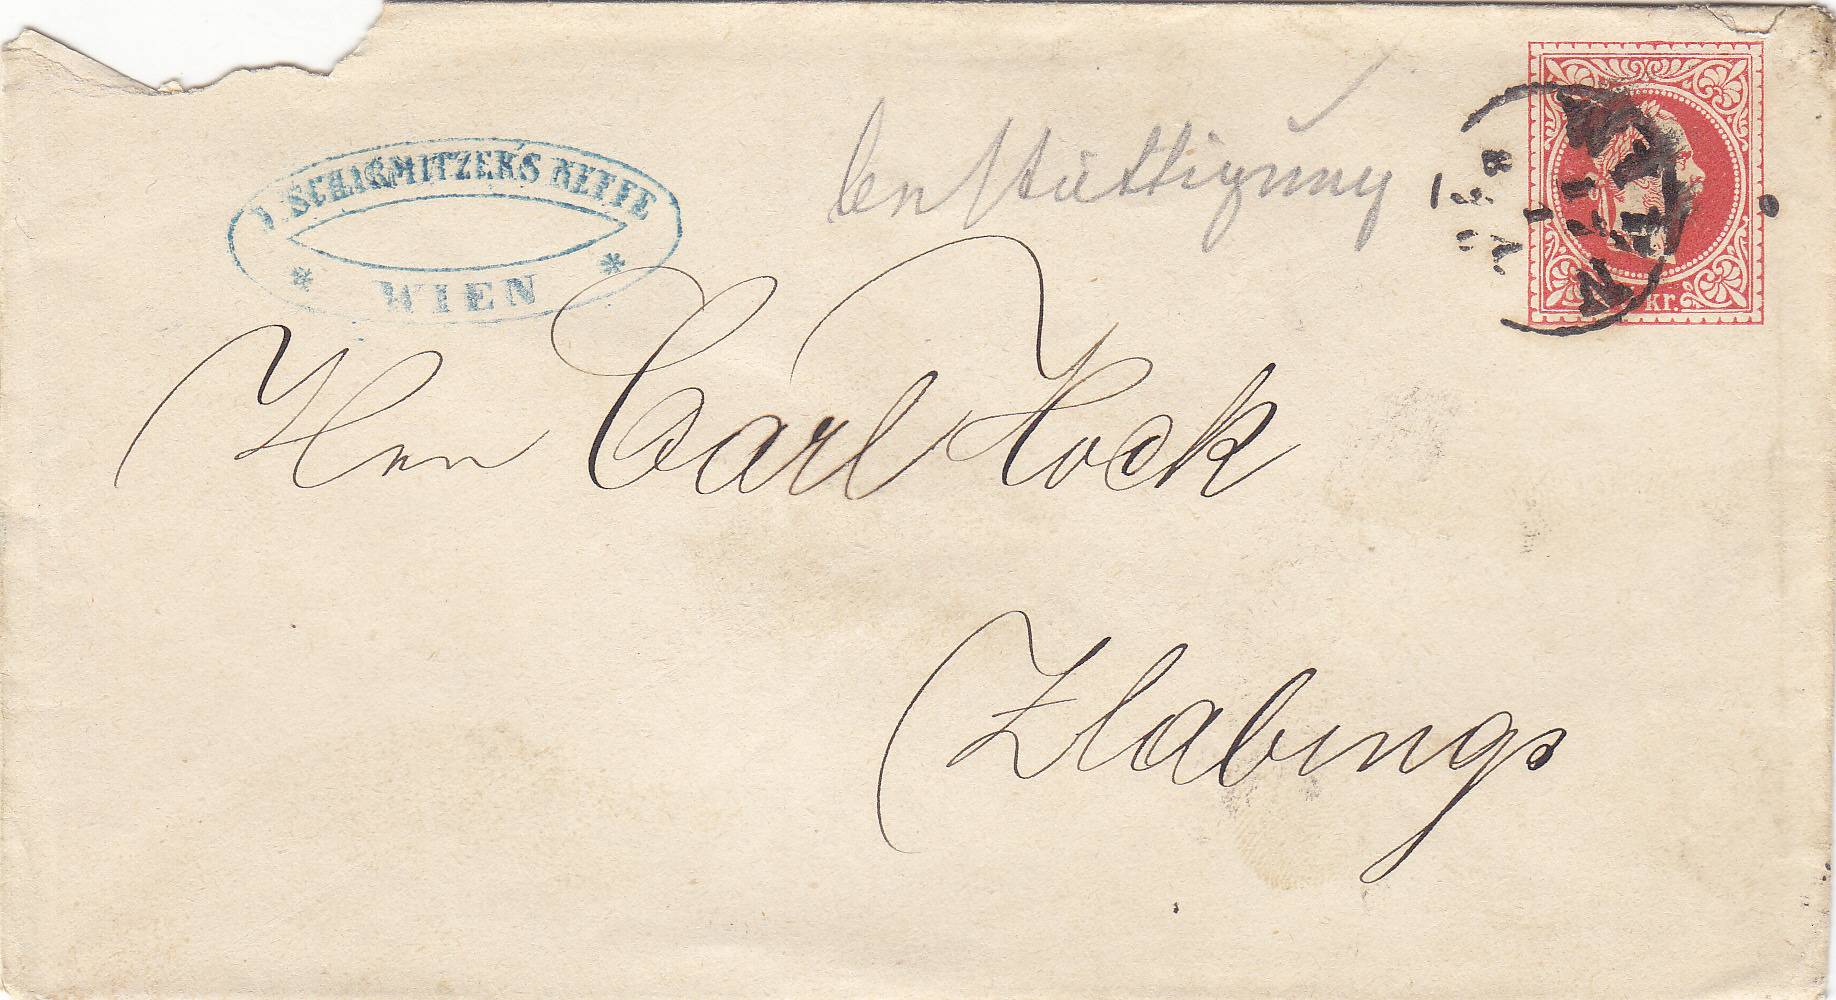 SCHARMITZER'S NEFFE
WIEN
Herrn Carl Hock
Zlabings
WIEN
kr.